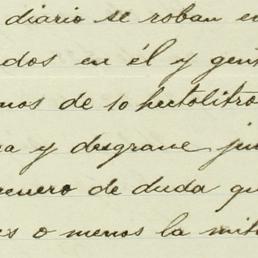 diario se roban en
dos en él y gent
nos de 10 hectolitro
a y desgrane ju
enero de duda qu
s o menos la mit